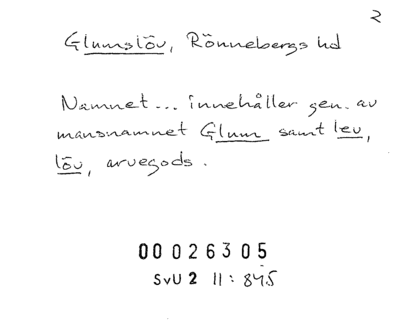 2
Glumslöv, Rönnebergs hd
Namnet... innehåller gen. av
mansnamnet Glum samt lev,
löv, arvegods.
00026305
SvU 2 11:845